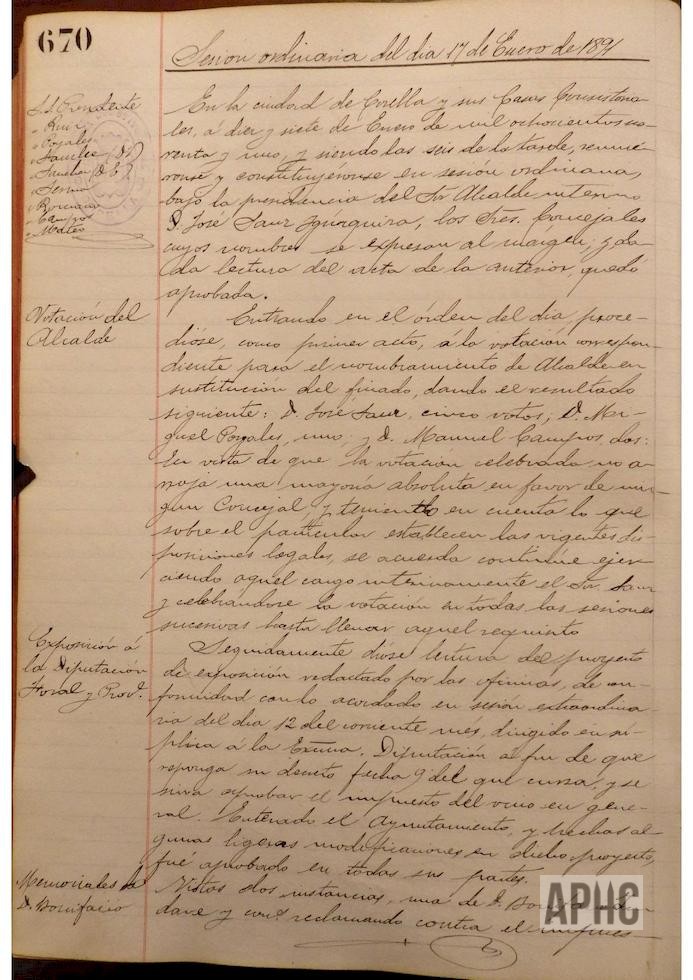 670
Sesion ordinaria del dia 17 de Enero de 1891
S.S. Presidente
" Ruiz
" Pozales
" Sanchez
" Sanchez
" Serna
" Campos
" Mateo
En la ciudad de Corella y sus Casas Consistoria-
les, á diez y siete de Enero de mil ochocientos no-
venta y uno, y siendo las seis de la tarde, reunié-
ronse y constituyeronse en sesión ordinaria,
bajo la presidencia del Sr. Alcalde interino
D. José Sanz los Sres. Concejales
cuyos nombres se expresan al márgen; y da-
da lectura del acta de la anterior, quedó
aprobada.
Votación del
Alcalde
Entrando en el órden del dia, proce-
dióse, como primer acto, a la votación correspon-
diente para el nombramiento de Alcalde en
sustitución del finado, dando el resultado
siguiente: D. José Sanz, cinco votos; D. Mi-
guel Pozales, uno; y D. Manuel Campos, dos:
En vista de que la votación celebrada no a-
rroja una mayoría absoluta en favor de nin-
gun Concejal, y teniendo en cuenta lo que
sobre el particular establecen las vigentes dis-
posiciones legales, se acuerda continúe ejer-
ciendo aquel cargo interinamente el Sr. Sanz
y celebrandose la votación en todas las sesiones
sucesivas hasta llenar aquel requisito
Exposición á
la Diputación
Foral y Provl.
Seguidamente dióse lectura del proyecto
de exposición redactado por las oficinas, de con-
formidad con lo acordado en sesión extraordina-
ria del dia 12 del corriente més, dirigido en sú-
plica á la Excma. Diputación á fin de que
reponga su decreto fecha 9 del que cursa, y se
sirva aprobar el impuesto del vino en gene-
ral. Enterado el Ayuntamiento, y hechas al-
gunas ligeras modificaciones en dicho proyecto,
fué aprobado en todas sus partes.
Memoriales de
D. Bonifacio
Vistas dos instancias, una de D.
y reclamando contra el impues-
APHC